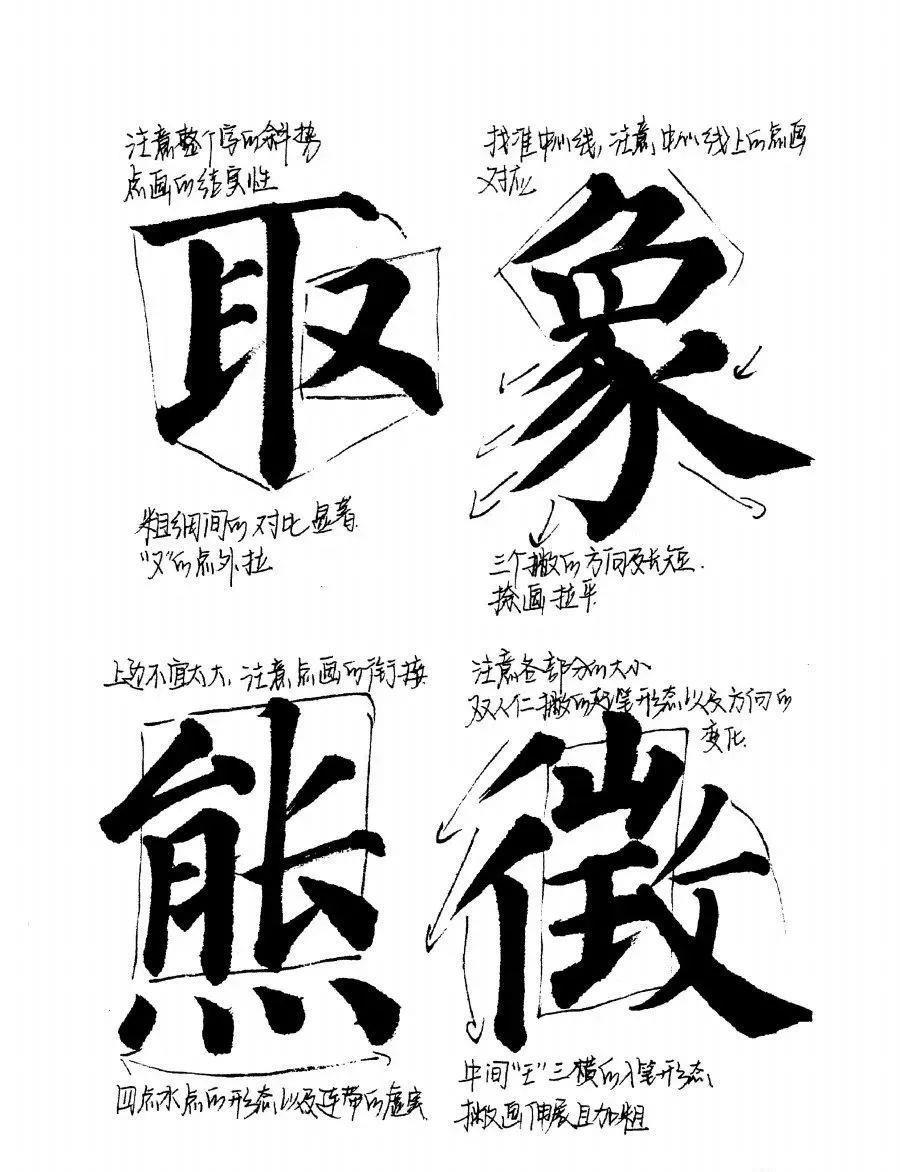 注意整个字的斜势
点画的结实性
取
粗细间的对比显著.
“又”的点外拉
找准中心线,注意中心线上的点画
对应
象
三个撇的方向及长短.
捺画拉平.
上边不宜太大,注意点画的衔接.
熊
四点水点的形态以及连带的虚实
注意各部分的大小
双人亻二撇的起笔形态以及方向的
变化.
徵
中间“王”三横的入笔形态,
撇画伸展且加粗